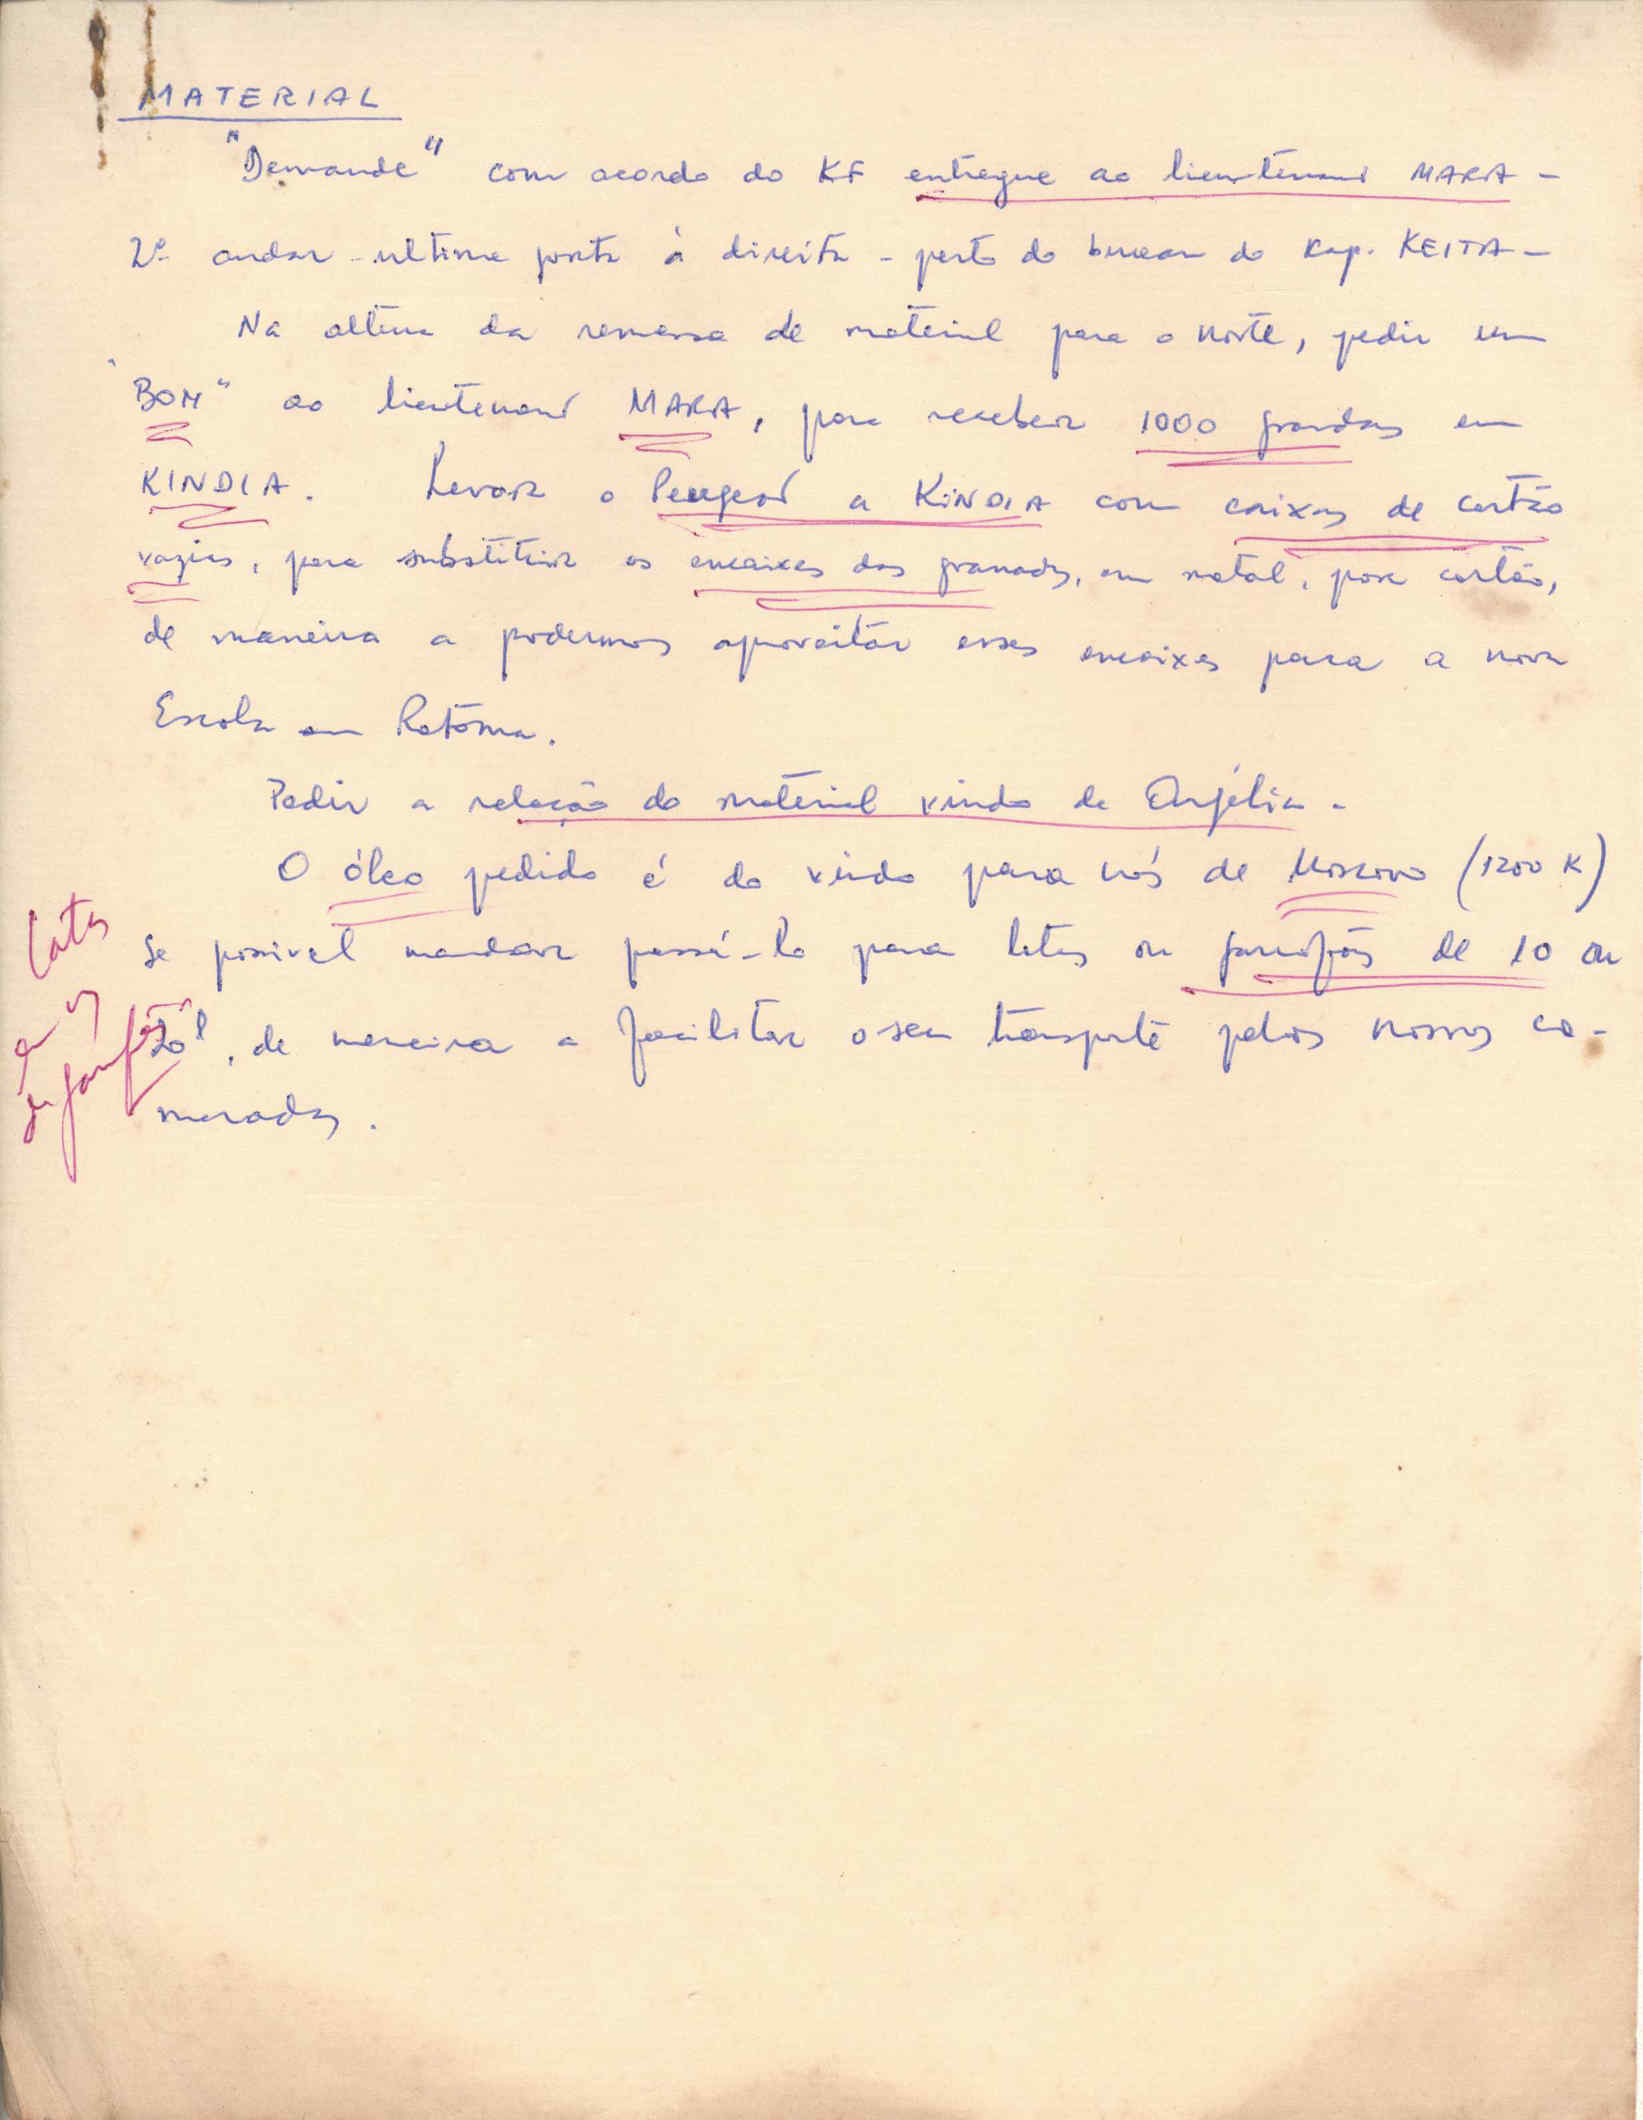 MATERIAL
"Demande" com acordo do KF entregue ao lieutenant MARA -
2º andar - ultima porta à direita - perto do bureau do Kap. KEITA -
Na altura da remessa de material para o norte, pedir um
"BON" ao lieutenant MARA, para receber 1000 grandas em
KINDIA. Levar o Peugeot a KINDIA com caixas de cartão
vazias, para substituir os encaixes das granadas, em metal, por cartão,
de maneira a podermos aproveitar esses encaixes para a nova
Escola em Ratoma.
Pedir a relação do material vindo de Argélia -
O óleo pedido é do vindo para nós de Moscovo (1200 K)
Se possivel mandar passá-lo para latas ou garrafões de 10 ou
20 l, de maneira a facilitar o seu transporte pelos nossos ca-
maradas.
Latas